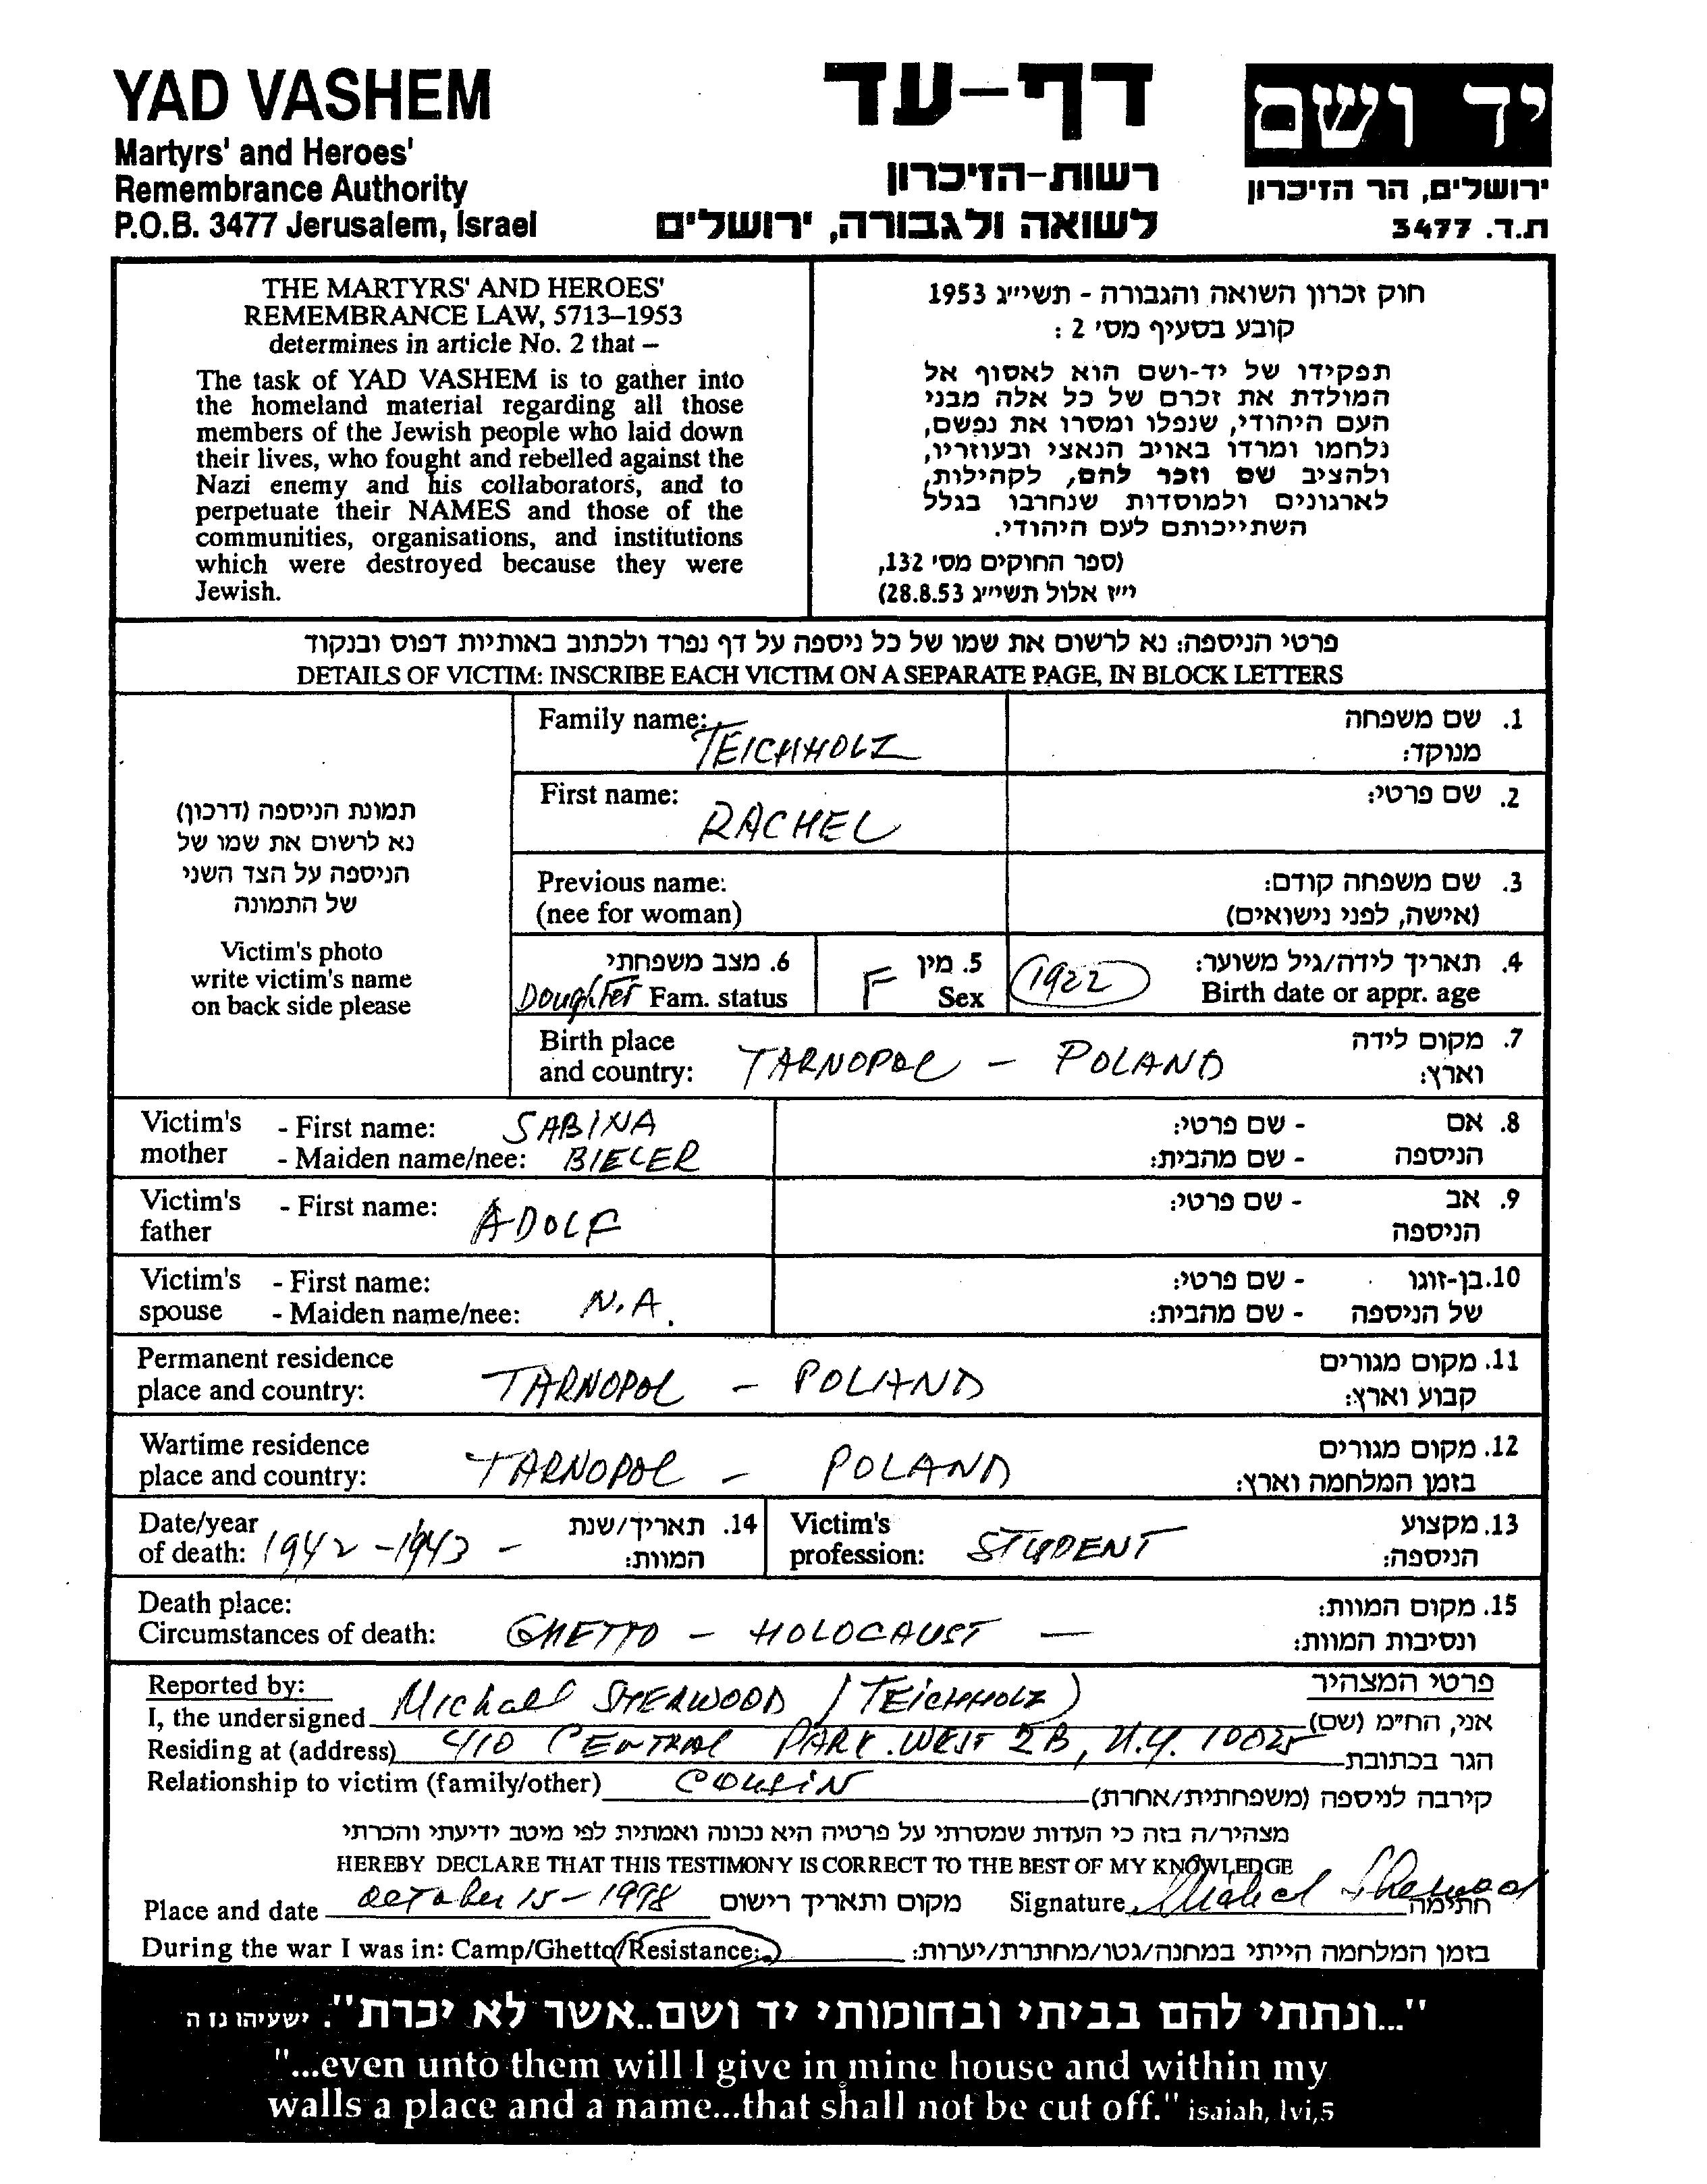 YAD VASHEM
Martyrs' and Heroes'
Remembrance Authority
P.O.B. 3477 Jerusalem, Israel
דף-עד
רשות-הזיכרון
לשואה ולגבורה, ירושלים
יד ושם
ירושלים, הר הזיכרון
ת.ד. 3477
THE MARTYRS' AND HEROES'
REMEMBRANCE LAW, 5713–1953
determines in article No. 2 that –
The task of YAD VASHEM is to gather into
the homeland material regarding all those
members of the Jewish people who laid down
their lives, who fought and rebelled against the
Nazi enemy and his collaborators, and to
perpetuate their NAMES and those of the
communities, organisations, and institutions
which were destroyed because they were
Jewish.
חוק זכרון השואה והגבורה - תשי״ג 1953
קובע בסעיף מס׳ 2 :
תפקידו של יד-ושם הוא לאסוף אל
המולדת את זכרם של כל אלה מבני
העם היהודי, שנפלו ומסרו את נפשם,
נלחמו ומרדו באויב הנאצי ובעוזריו,
ולהציב שם וזכר להם, לקהילות,
לארגונים ולמוסדות שנחרבו בגלל
השתייכותם לעם היהודי.
(ספר החוקים מס׳ 132,
י״ז אלול תשי״ג 28.8.53)
פרטי הניספה: נא לרשום את שמו של כל ניספה על דף נפרד ולכתוב באותיות דפוס ובנקוד
DETAILS OF VICTIM: INSCRIBE EACH VICTIM ON A SEPARATE PAGE, IN BLOCK LETTERS
תמונת הניספה (דרכון)
נא לרשום את שמו של
הניספה על הצד השני
של התמונה
Victim's photo
write victim's name
on back side please
Family name: TEICHHOLZ
1. שם משפחה
מנוקד:
First name: RACHEL
2. שם פרטי:
Previous name:
(nee for woman)
3. שם משפחה קודם:
(אישה, לפני נישואים)
6. מצב משפחתי
Doughter Fam. status
5. מין
F Sex
1922
4. תאריך לידה/גיל משוער:
Birth date or appr. age
Birth place
and country: TARNOPOL - POLAND
7. מקום לידה
וארץ:
Victim's mother - First name: SABINA
- Maiden name/nee: BIELER
8. אם - שם פרטי:
הניספה - שם מהבית:
Victim's father - First name: ADOLF
9. אב - שם פרטי:
הניספה
Victim's spouse - First name:
- Maiden name/nee: N.A.
10. בן-זוגו - שם פרטי:
של הניספה - שם מהבית:
Permanent residence
place and country: TARNOPOL - POLAND
11. מקום מגורים
קבוע וארץ:
Wartime residence
place and country: TARNOPOL - POLAND
12. מקום מגורים
בזמן המלחמה וארץ:
Date/year
of death: 1942 - 1943 -
14. תאריך/שנת
המוות:
Victim's
profession: STUDENT
13. מקצוע
הניספה:
Death place:
Circumstances of death: GHETTO - HOLOCAUST —
15. מקום המוות:
ונסיבות המוות:
Reported by:
פרטי המצהיר
I, the undersigned Michael SHERWOOD / TEICHHOLZ) אני, הח״מ (שם)
Residing at (address) 410 CENTRAL PARK.WEST 2B, N.Y. 10025 הגר בכתובת
Relationship to victim (family/other) COUSIN קירבה לניספה (משפחתית/אחרת)
מצהיר/ה בזה כי העדות שמסרתי על פרטיה היא נכונה ואמתית לפי מיטב ידיעתי והכרתי
HEREBY DECLARE THAT THIS TESTIMONY IS CORRECT TO THE BEST OF MY KNOWLEDGE
Place and date October 15-1998 מקום ותאריך רישום Signature Michael Sherwood חתימה
During the war I was in: Camp/Ghetto/Resistance: בזמן המלחמה הייתי במחנה/גטו/מחתרת/יערות:
"...ונתתי להם בביתי ובחומותי יד ושם..אשר לא יכרת". ישעיהו נו ה
"...even unto them will I give in mine house and within my
walls a place and a name...that shall not be cut off." isaiah, lvi,5